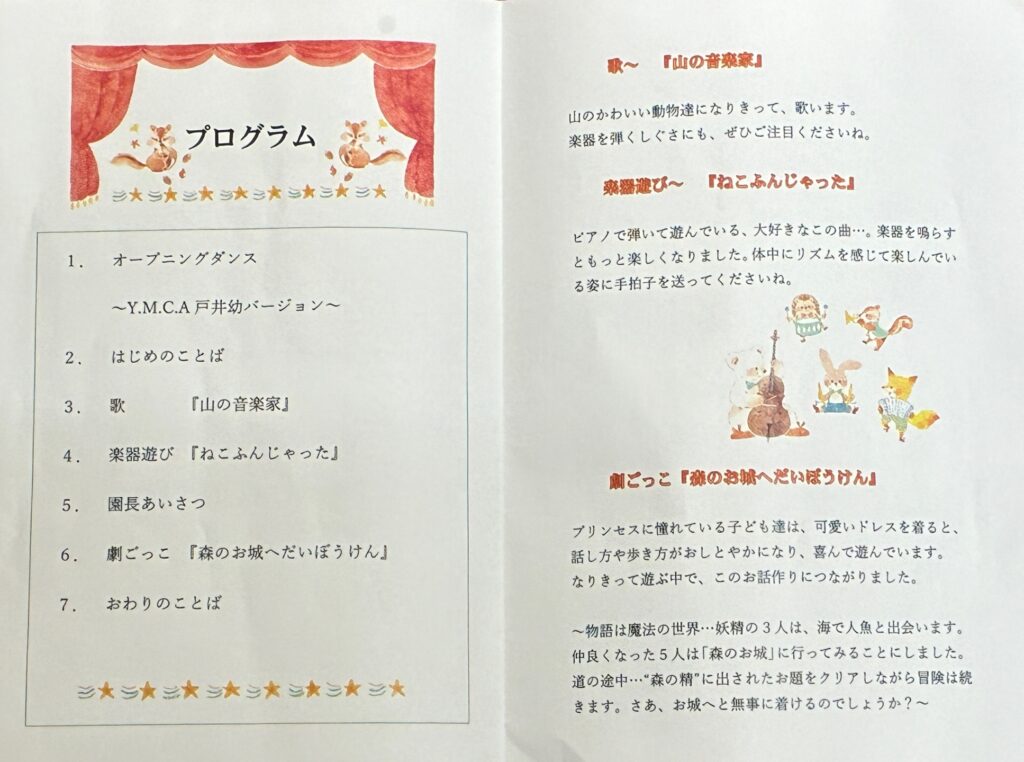 プログラム
1． オープニングダンス
～Y.M.C.A 戸井幼バージョン～
2． はじめのことば
3． 歌 『山の音楽家』
4． 楽器遊び 『ねこふんじゃった』
5． 園長あいさつ
6． 劇ごっこ 『森のお城へだいぼうけん』
7． おわりのことば
歌～ 『山の音楽家』
山のかわいい動物達になりきって、歌います。
楽器を弾くしぐさにも、ぜひご注目くださいね。
楽器遊び～ 『ねこふんじゃった』
ピアノで弾いて遊んでいる、大好きなこの曲…。楽器を鳴らす
ともっと楽しくなりました。体中にリズムを感じて楽しんでい
る姿に手拍子を送ってくださいね。
劇ごっこ『森のお城へだいぼうけん』
プリンセスに憧れている子ども達は、可愛いドレスを着ると、
話し方や歩き方がおしとやかになり、喜んで遊んでいます。
なりきって遊ぶ中で、このお話作りにつながりました。
～物語は魔法の世界…妖精の３人は、海で人魚と出会います。
仲良くなった５人は「森のお城」に行ってみることにしました。
道の途中…“森の精”に出されたお題をクリアしながら冒険は続
きます。さあ、お城へと無事に着けるのでしょうか？～